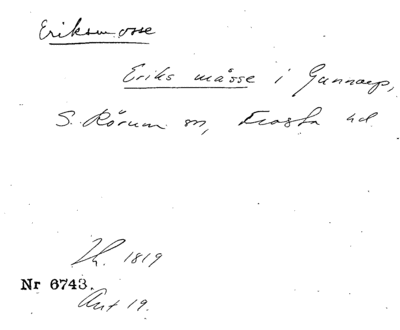 Eriksmosse
Eriks måsse i Gunnarp,
S. Rörum sn, Frosta hd
Lh. 1819
Nr 6743.
Akt 19.